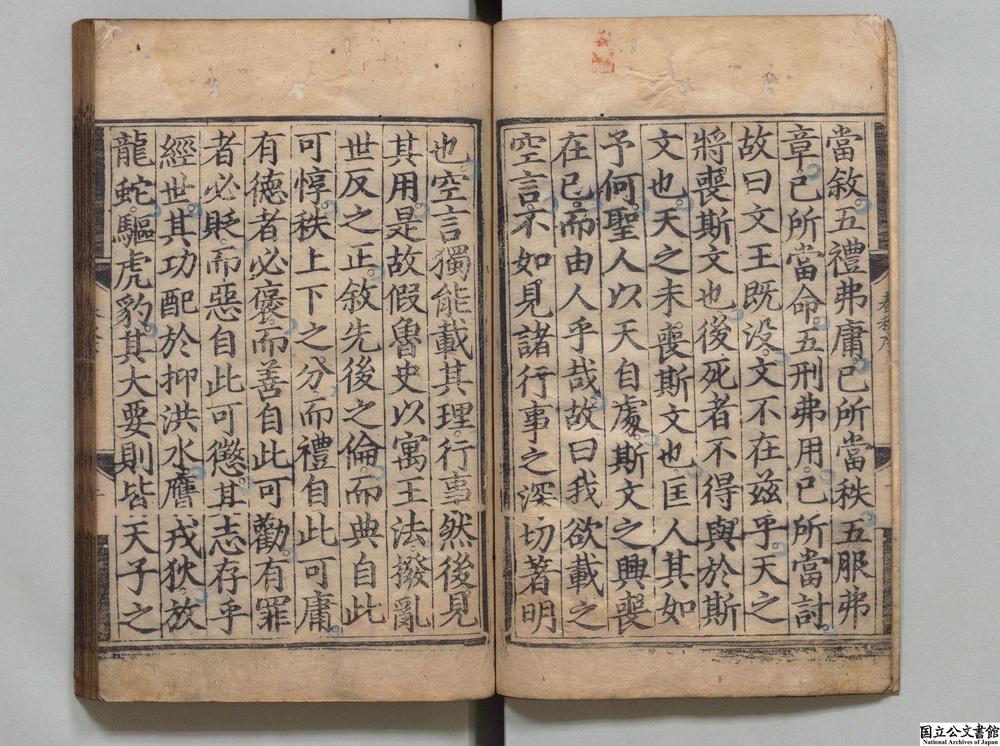 當敘五禮弗庸己所當秩五服弗
章己所當命五刑弗用己所當討
故曰文王既没文不在茲乎天之
將喪斯文也後死者不得與於斯
文也天之未喪斯文也匡人其如
予何聖人以天自處斯文之興喪
在己而由人乎哉故曰我欲載之
空言不如見諸行事之深切著明
也空言獨能載其理行事然後見
其用是故假魯史以寓王法撥亂
世反之正敘先後之倫而典自此
可惇秩上下之分而禮自此可庸
有德者必褒而善自此可勸有罪
者必貶而惡自此可懲其志存乎
經世其功配於抑洪水膺戎狄放
龍蛇驅虎豹其大要則皆天子之
国立公文書館
National Archives of Japan